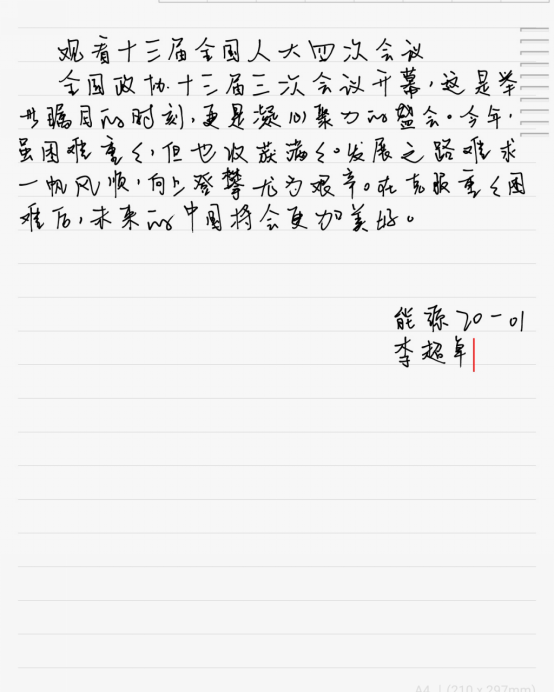 观看十三届全国人大四次会议
全国政协十三届三次会议开幕，这是举
世瞩目的时刻，更是凝心聚力的盛会。今年，
虽困难重重，但也收获满满。发展之路难求
一帆风顺，向上登攀尤为艰辛。在克服重重困
难后，未来的中国将会更加美好。
能源20-01
李超卓
A4 | (210 x 297mm)